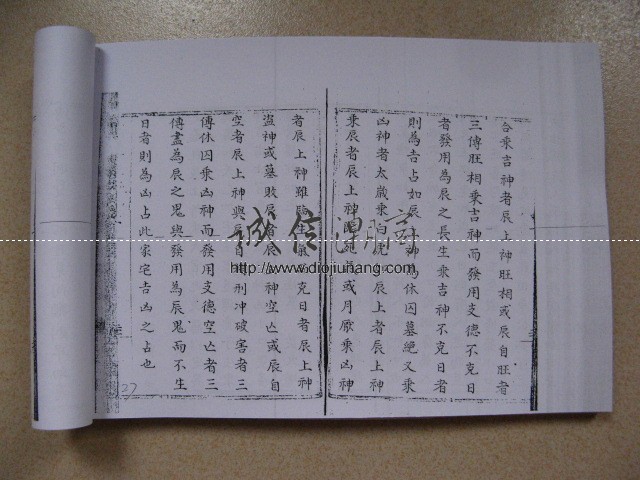 合乘吉神者辰上神旺相或辰自旺者
三傳旺相乘吉神而發用支德不克日
者發用為辰之長生乘吉神不克日者
則為吉占如辰上神為休囚墓絶又乘
凶神者太歲乘白虎辰上者辰上神
乘辰者辰上神或月厭乘凶神
者辰上神雖臨生克日者辰上神
盗神或墓敗辰者辰神空亡或辰自
空者辰上神與辰自刑冲破害者三
傳休囚乘凶神而發用支德空亡者三
傳盡為辰之鬼與發用為辰鬼而不生
日者則為凶占此家宅吉凶之占也
27
誠信潮商
http://www.diojiuhang.com